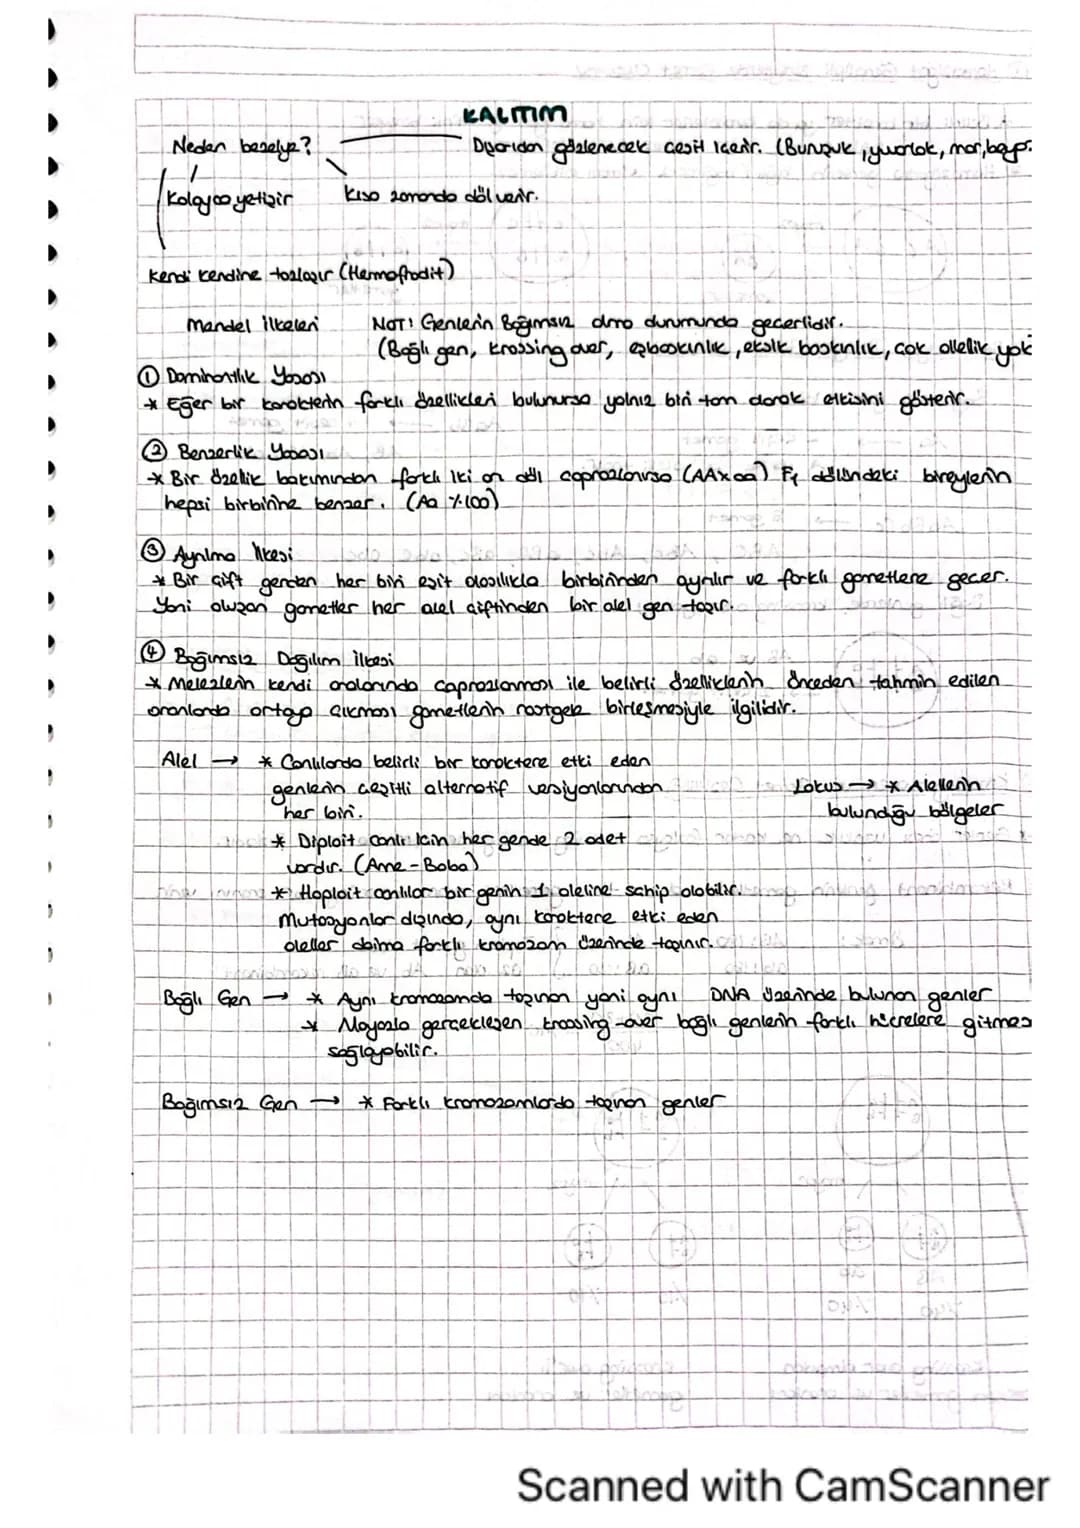 KALITIM
Neden bezelye?
Dışarıdan gözlenecek çeşit içerir. (Buruşuk, yuvarlak, mor, beyaz.
Kolayca yetişir
Kısa zamanda döl verir.
Kendi kendine tozlaşır (Hermofrodit)
Mendel İlkeleri
NOT! Genlerin Bağımsız olma durumunda geçerlidir.
(Bağlı gen, krossing over, eşbaskınlık, eksik baskınlık, çok alellik yok
① Dominantlık Yasası
* Eğer bir karakterin farklı özellikleri bulunursa yalnız biri tam olarak etkisini gösterir.
② Benzerlik Yasası
* Bir özellik bakımından farklı iki arı döl çaprazlanırsa (AAxaa) F1 dölündeki bireylerin
hepsi birbirine benzer. (Aa %100)
③ Ayrılma İlkesi
* Bir çift genden her biri eşit olasılıkla birbirinden ayrılır ve farklı gametlere geçer.
Yani oluşan gametler her alel çiftinden bir alel gen taşır.
④ Bağımsız Dağılım İlkesi
* Melezlerin kendi aralarında çaprazlanması ile belirli özelliklerin önceden tahmin edilen
oranlarda ortaya çıkması gametlerin rastgele birleşmesiyle ilgilidir.
Alel → * Canlılarda belirli bir karaktere etki eden
genlerin çeşitli alternatif versiyonlarından
her biri.
Lokus → * Alellerin
bulunduğu bölgeler
* Diploit canlı için her gende 2 adet
vardır. (Anne-Baba)
* Haploit canlılar bir genin 1 aleline sahip olabilir.
Mutasyonlar dışında, aynı karaktere etki eden
aleller daima farklı kromozom üzerinde taşınır.
Bağlı Gen → * Aynı kromozomda taşınan yani aynı DNA üzerinde bulunan genler
* Mayozla gerçekleşen krossing-over bağlı genlerin farklı hücrelere gitmes
sağlayabilir.
Bağımsız Gen → * Farklı kromozomlarda taşınan genler
Scanned with CamScanner